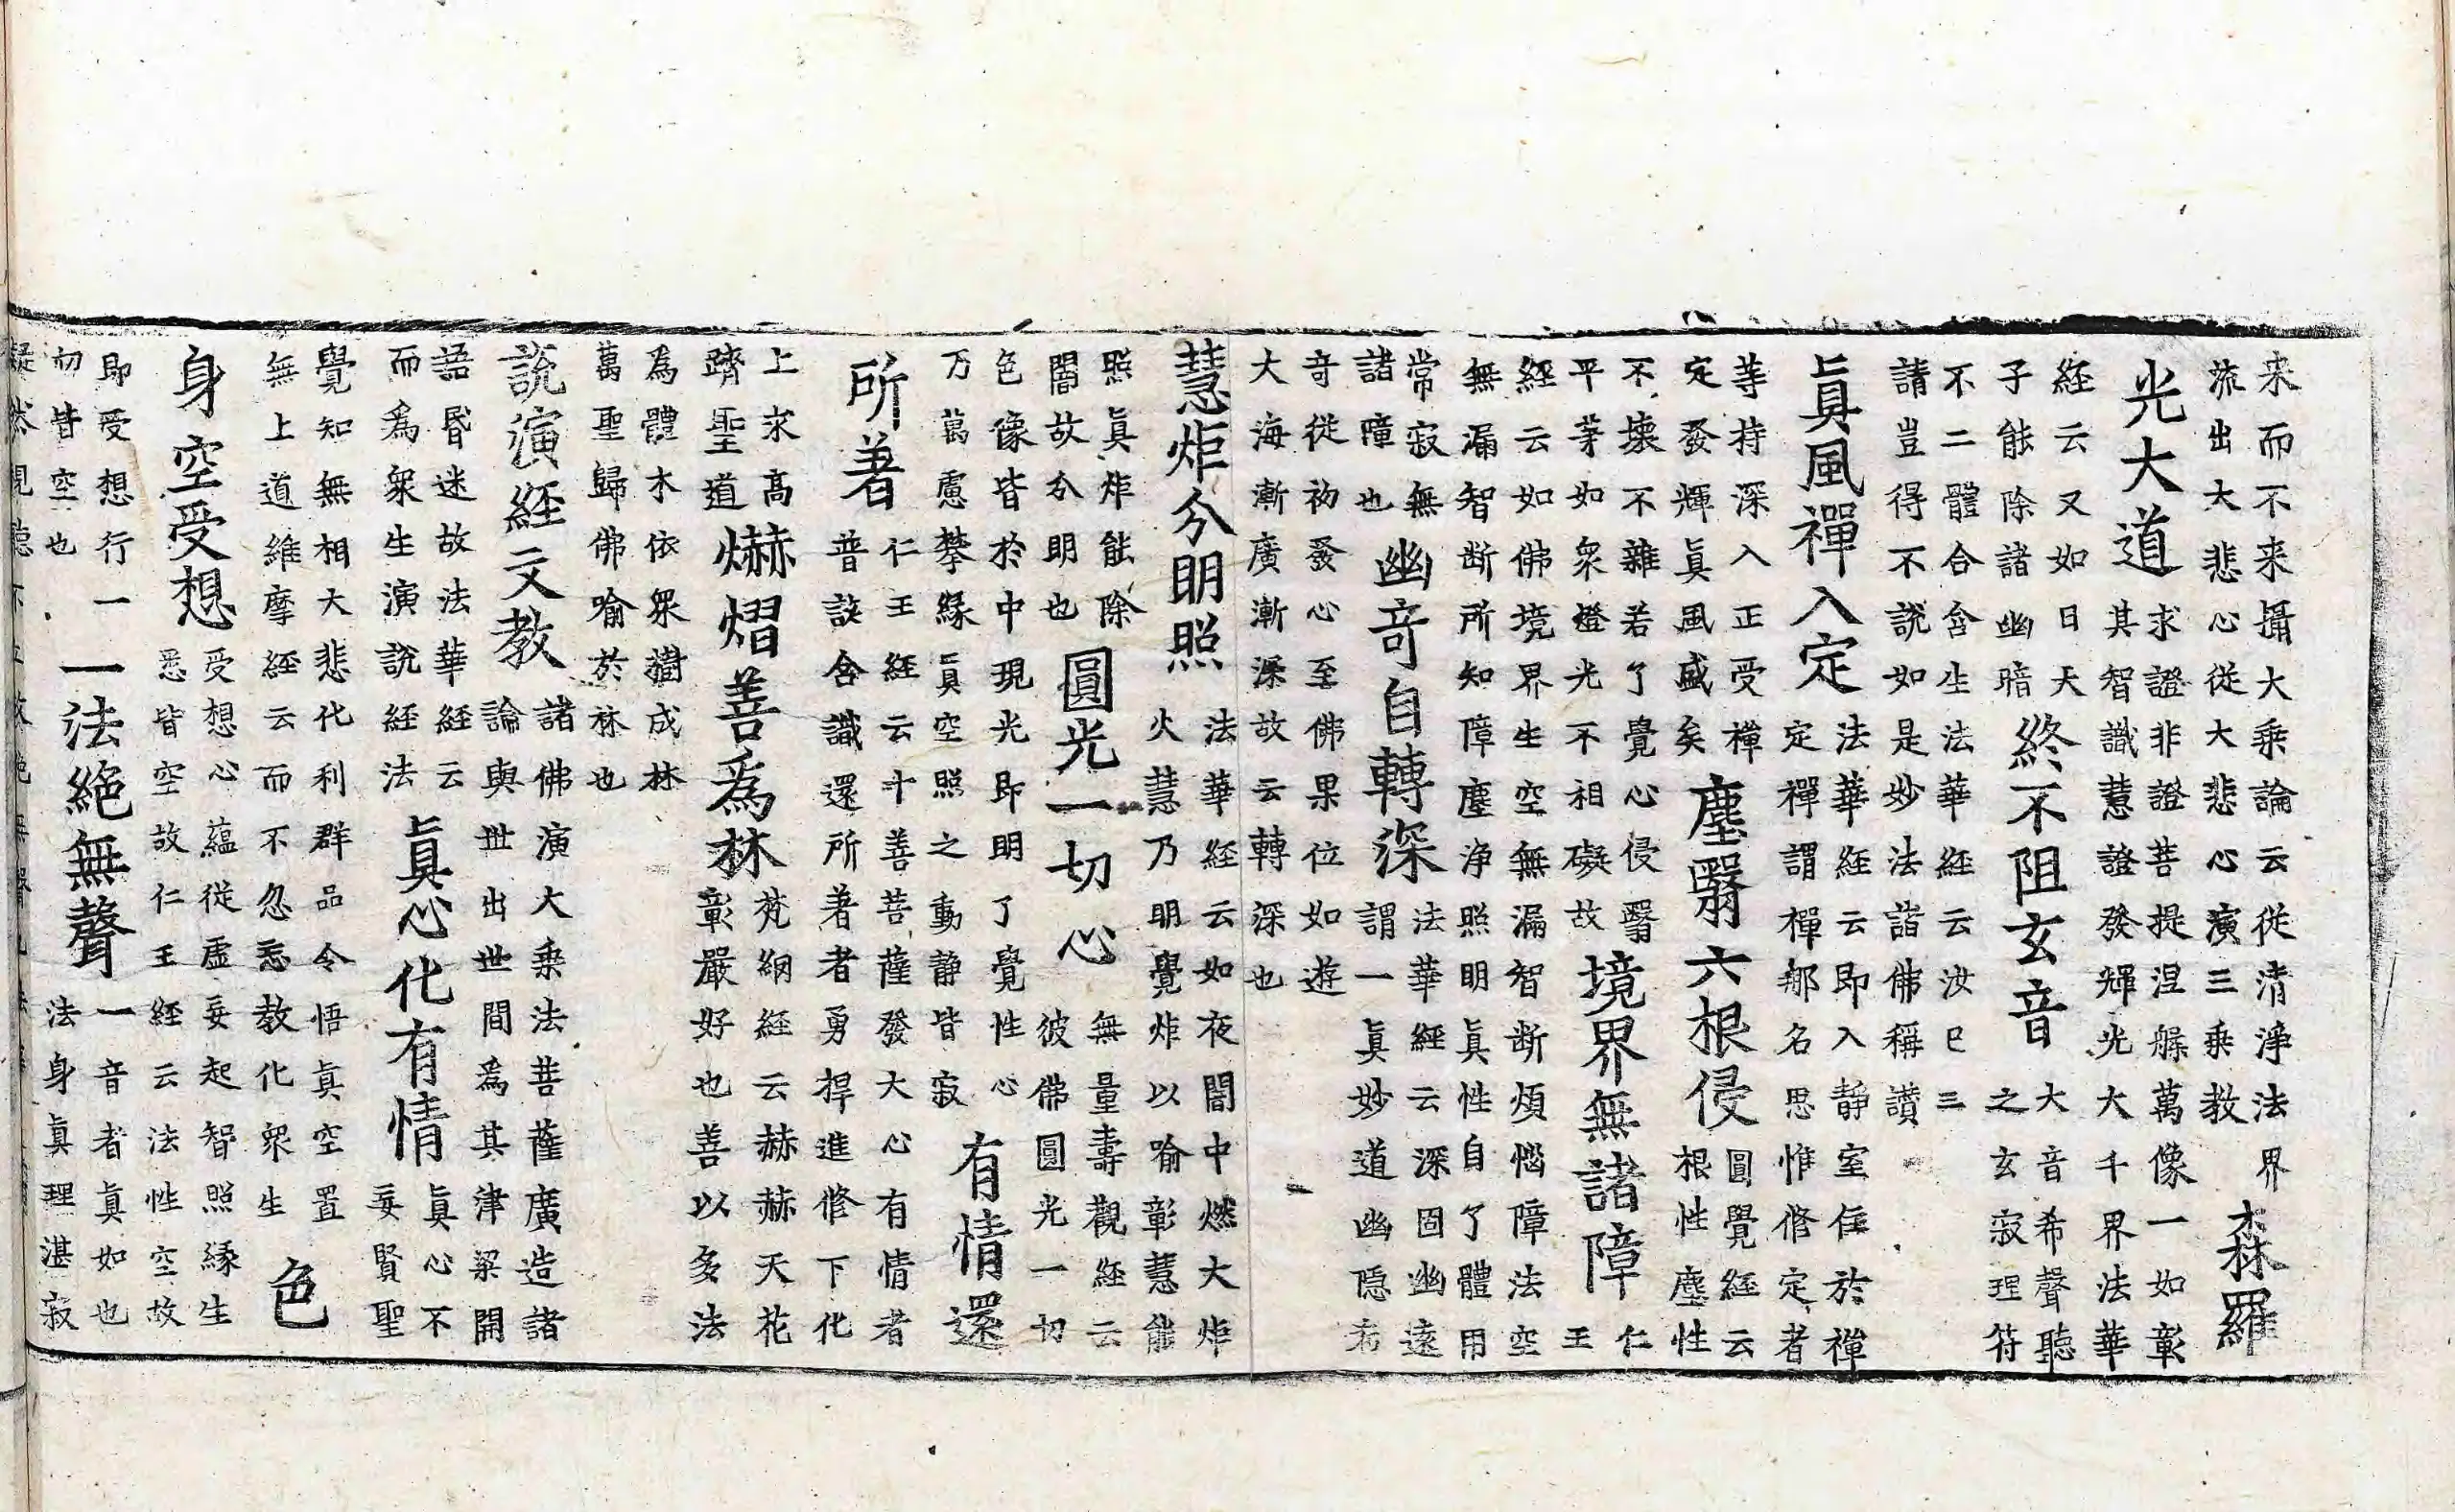 来而不来攝大乘論云從清淨法界
流出大大悲心從大悲心演三乘教
森羅
光大道
求證非證菩提涅槃萬像一如彰
其智識慧證發輝光大千界法華
經云又如日天
子能除諸幽暗
終不阻玄音
大音希聲聽
之玄寂理符
不二體合含生法華經云汝巳三
請豈得不說如是妙法諸佛稱讚
眞風禪入定
法華經云即入靜室住於禪
定禪謂禪那名思惟修定者
等持深入正受禪
定發輝眞風盛矣
塵翳六根侵
圓覺經云
根性塵性
不壞不雜若了覺心侵翳
平等如衆燈光不相礙故
境界無諸障
仁
王
經云如佛境界生空無漏智断煩惱障法空
無漏智断所知障塵净照明眞性自了體用
常寂無
諸障也
幽竒自轉深
法華經云深固幽遠
謂一眞妙道幽隱
竒從初發心至佛果位如遊
大海漸廣漸深故云轉深也
慧炬分明照
法華經云如夜闇中燃大炬
火慧乃明覺炸以喻彰慧能
照眞炸能除
闇故分明也
圓光一切心
無量壽觀經云
彼佛圓光一切
色像皆於中現光即明了覺性心
万萬慮攀緣眞空照之動静皆寂
有情還
所著
仁王經云十善菩薩發大心有情者
普該含識還所著者勇捍進修下化
上求髙
躋聖道
爀熠善爲林
梵網經云赫赫天花
彰嚴好也善以多法
為體木依衆樹成林
萬聖歸佛喻於林也
說演經文教
諸佛演大乘法菩薩廣造諸
論與世出世間爲其津梁開
語昏迷故法華經云
而爲衆生演說經法
眞心化有情
眞心不
妄賢聖
覺知無相大悲化利群品令悟眞空置
無上道維摩經云而不忽悉教化衆生
色
身空受想
受想心蘊從虛妄起智照緣生
悉皆空故仁王經云法性空故
即受想行一
切皆空也
一法絕無聲
一音者眞如也
法身眞理湛寂